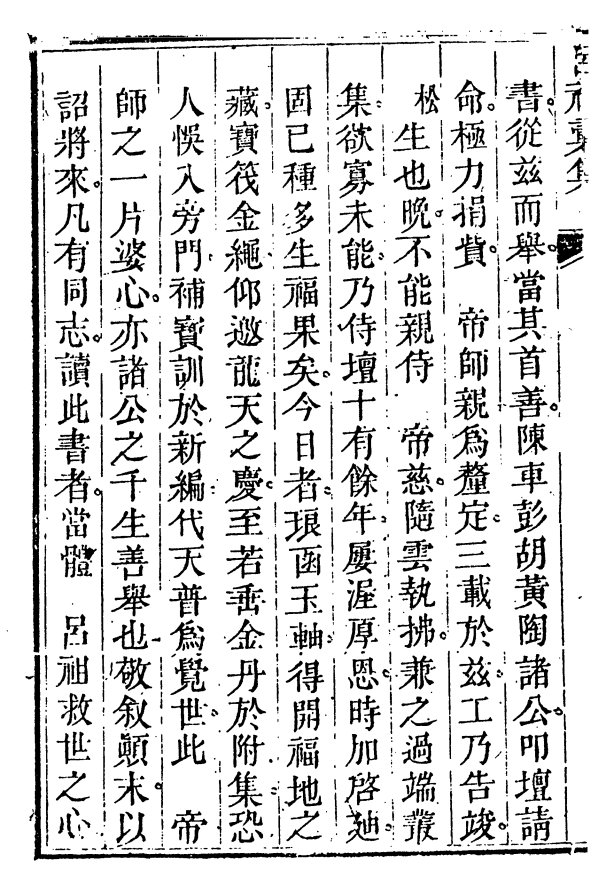 呂祖彙集
書。從茲而舉。當其首善。陳車彭胡黃陶諸公。叩壇請
命。極力捐貲。　帝師親爲釐定。三載於茲。工乃告竣。
松生也晚。不能親侍　帝慈。隨雲執拂。兼之過端叢
集。欲寡未能。乃侍壇十有餘年。屢渥厚恩。時加啓廸。
固已種多生福果矣。今日者。琅函玉軸。得開福地之
藏。寶筏金繩。仰邀龍天之慶。至若垂金丹於附集。恐
人悞入旁門。補寶訓於新編。代天普爲覺世。此　帝
師之一片婆心。亦諸公之千生善舉也。敬叙顚末。以
詔將來。凡有同志。讀此書者。當體　呂祖救世之心